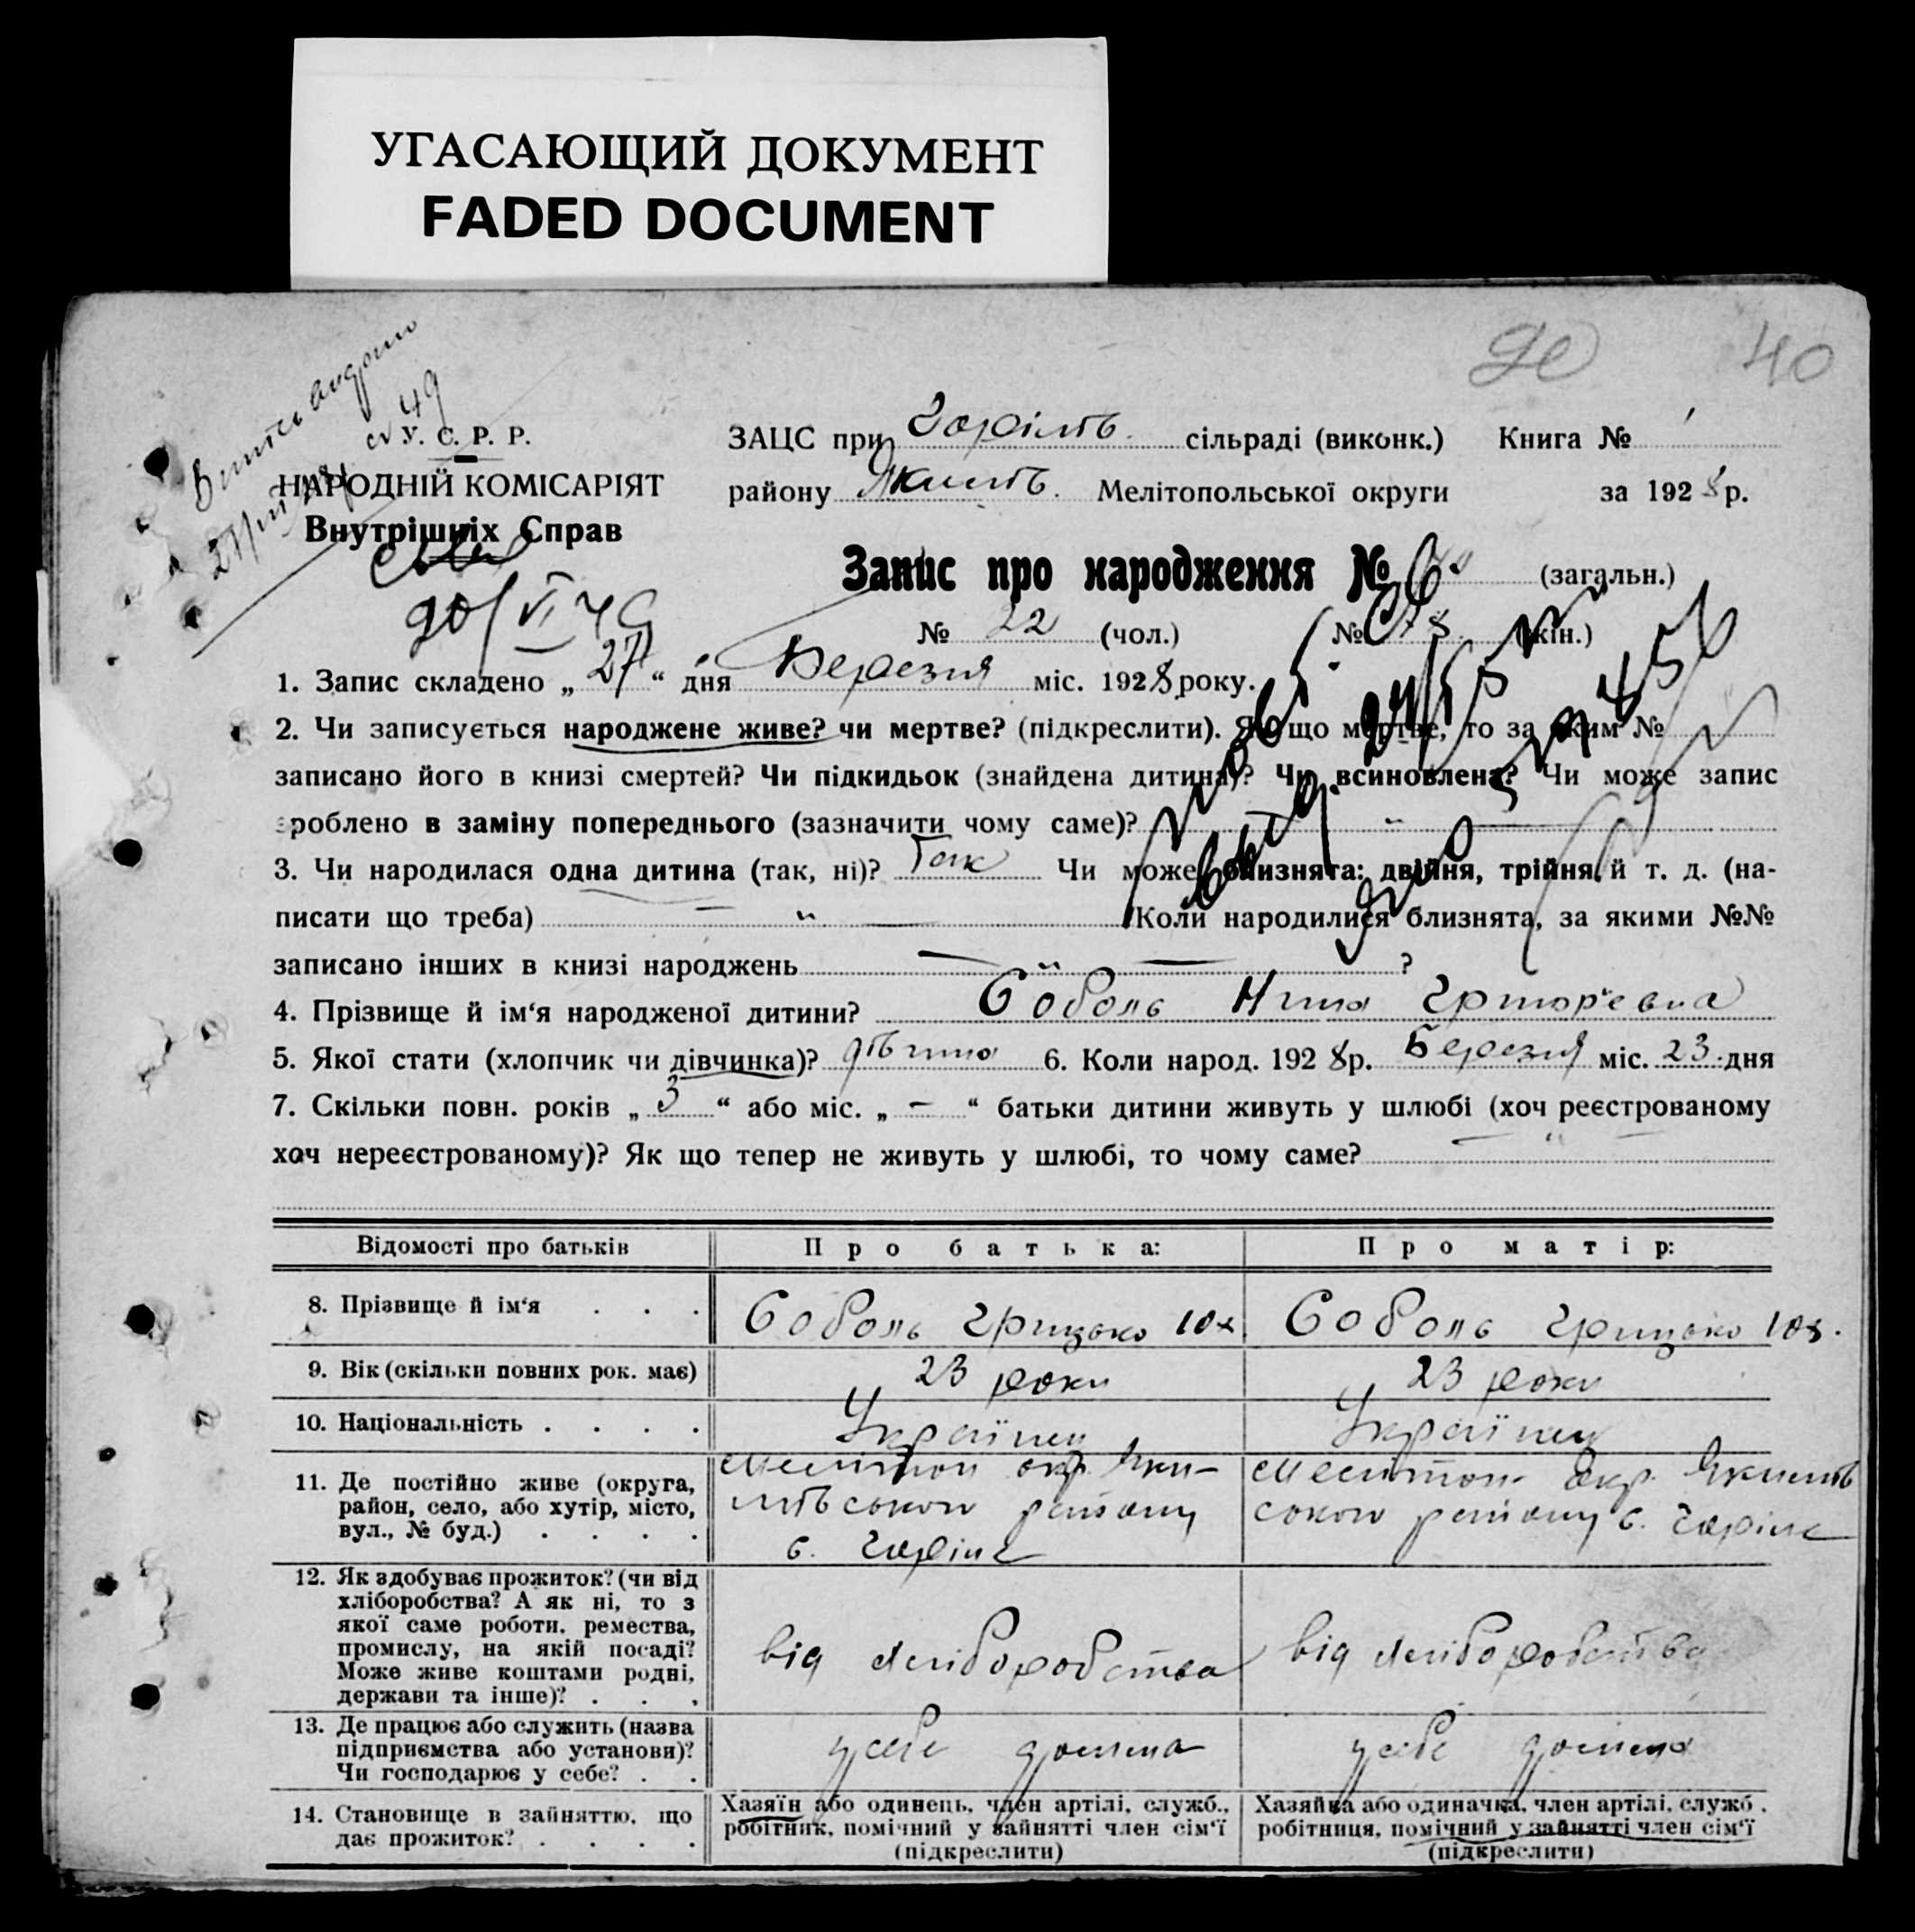 УГАСАЮЩИЙ ДОКУМЕНТ
FADED DOCUMENT
90 40
У. С. Р. Р.
НАРОДНІЙ КОМІСАРІЯТ
Внутрішніх Справ
ЗАЦС при сільраді (виконк.) Книга №
району Якимів. Мелітопольської округи за 1928 р.
Запис про народження № (загальн.)
№ 22 (чол.) № (жін.)
1. Запис складено „27“ дня Березня міс. 1928 року.
2. Чи записується народжене живе? чи мертве? (підкреслити). Як що мертве, то за яким №
записано його в книзі смертей? Чи підкидьок (знайдена дитина)? Чи всиновлена? Чи може запис
зроблено в заміну попереднього (зазначити чому саме)?
3. Чи народилася одна дитина (так, ні)? Так Чи може близнята: двійня, трійня й т. д. (на-
писати що треба) Коли народилися близнята, за якими №№
записано інших в книзі народжень ?
4. Прізвище й ім‘я народженої дитини? Соболь Нина Григор'евна
5. Якої стати (хлопчик чи дівчинка)? дівчина 6. Коли народ. 1928 р. Березня міс. 23 дня
7. Скільки повн. років „3“ або міс. „-“ батьки дитини живуть у шлюбі (хоч реєстрованому
хоч нереєстрованому)? Як що тепер не живуть у шлюбі, то чому саме?
Відомості про батьків Про батька: Про матір:
8. Прізвище й ім‘я . . . Соболь Грицько Юх Соболь Грицько Юх.
9. Вік (скільки повних рок. має) 23 роки 23 роки
10. Національність . . . . Українец Українец
11. Де постійно живе (округа,
район, село, або хутір, місто,
вул., № буд.) . . . .
Мелітоп окр. Яки-
мівського району
с.
Мелитоп. Окр. Якимів
ского району с.
12. Як здобуває прожиток? (чи від
хліборобства? А як ні, то з
якої саме роботи, ремества,
промислу, на якій посаді?
Може живе коштами родні,
держави та інше)? . . .
від хліборобства від хліборобства
13. Де працює або служить (назва
підприємства або установи)?
Чи господарює у себе? . .
у себе дома у себе дома
14. Становище в зайняттю, що
дає прожиток? . . . .
Хазяїн або одинець, член артілі, служб.,
робітник, помічний у зайнятті член сім‘ї
(підкреслити)
Хазяйка або одиначка, член артілі, служб.,
робітниця, помічний у зайнятті член сім‘ї
(підкреслити)